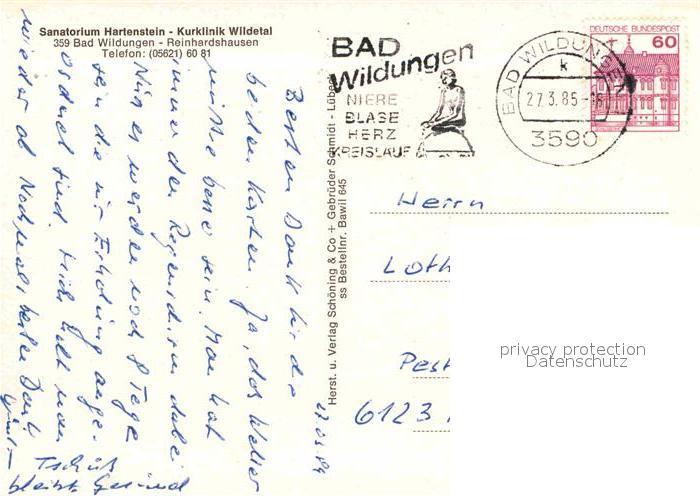 Sanatorium Hartenstein - Kurklinik Wildetal
359 Bad Wildungen - Reinhardshausen
Telefon: (05621) 60 81
BAD
Wildungen
NIERE
BLASE
HERZ
KREISLAUF
BAD WILDUNGEN
k
27.3.85-18
3590
DEUTSCHE BUNDESPOST
60
Herst. u. Verlag Schöning & Co + Gebrüder Schmidt - Lübeck
ss Bestellnr. Bawil 645
Besten Dank für die
beiden Karten. Ja, das Wetter
müßte besser sein. Man hat
immer den Regenschirm dabei
Nur es werden noch 8 Tage
sein die wir Erholung
sind.
wieder ab Nochmals besten Dank
Tschüß
bleibt Gesund
Herrn
Loth
Pest
6123
privacy protection
Datenschutz